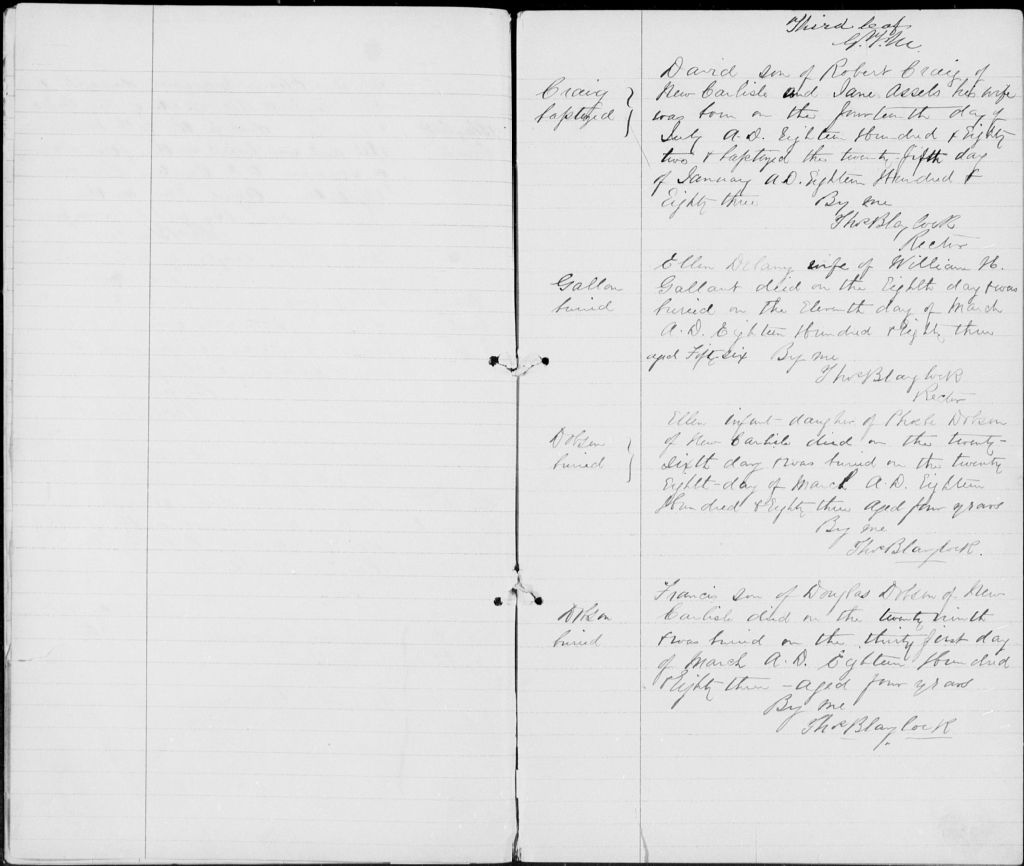 Third leaf
Craig
baptized
David son of Robert Craig of
New Carlisle and Jane Assels his wife
was born on the fourteenth day of
July A.D. Eighteen Hundred & Eighty
two & baptized this twenty-fifth day
of January A.D. Eighteen Hundred &
Eighty three By me
Thos Blaylock
Rector
Gallon
buried
Ellen Delany wife of William H.
Gallant died on the Eighth day & was
buried on the Eleventh day of March
A.D. Eighteen Hundred & Eighty three
aged Fifty-six By me
Thos Blaylock
Rector
Dobson
buried
Ellen infant-daughter of Phoebe Dobson
of New Carlisle died on the twenty-
sixth day & was buried on the twenty
Eighth-day of March A.D. Eighteen
Hundred & Eighty three aged four years
By me
Thos Blaylock.
Dobson
buried
Francis son of Douglas Dobson of New
Carlisle died on the twenty ninth
& was buried on the thirty first day
of March A.D. Eighteen Hundred
& Eighty three - aged four years
By me
Thos Blaylock